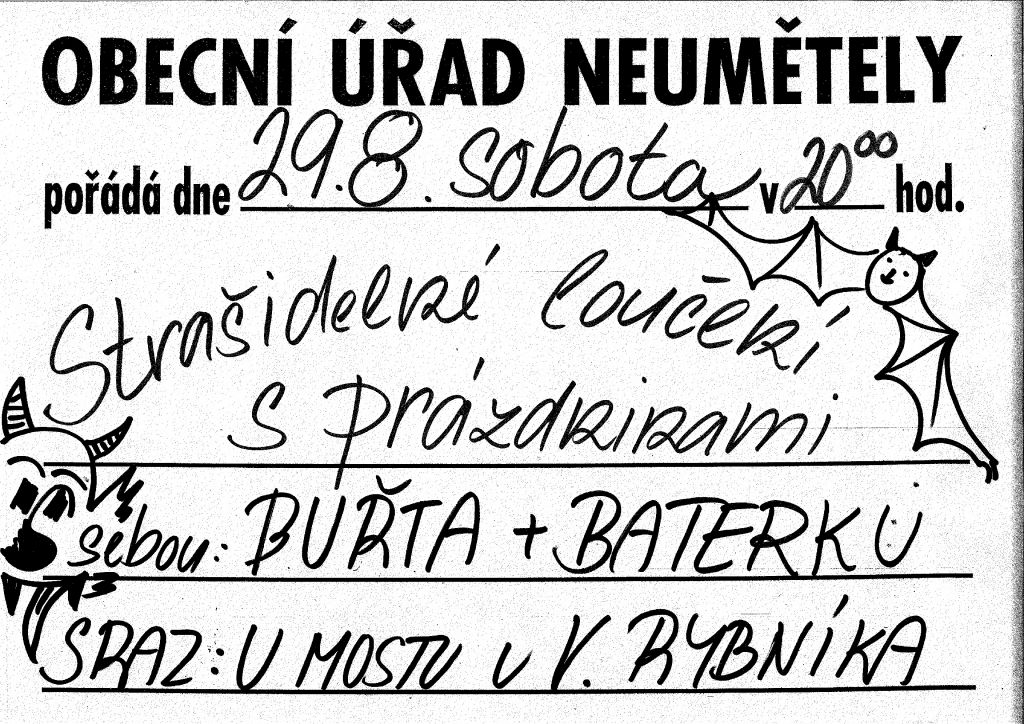 OBECNÍ ÚŘAD NEUMĚTELY
pořádá dne 29.8. sobota v 20⁰⁰ hod.
Strašidelné loučení
s prázdninami
sebou: BUŘTA + BATERKU
SRAZ: U MOSTU U V. RYBNÍKA